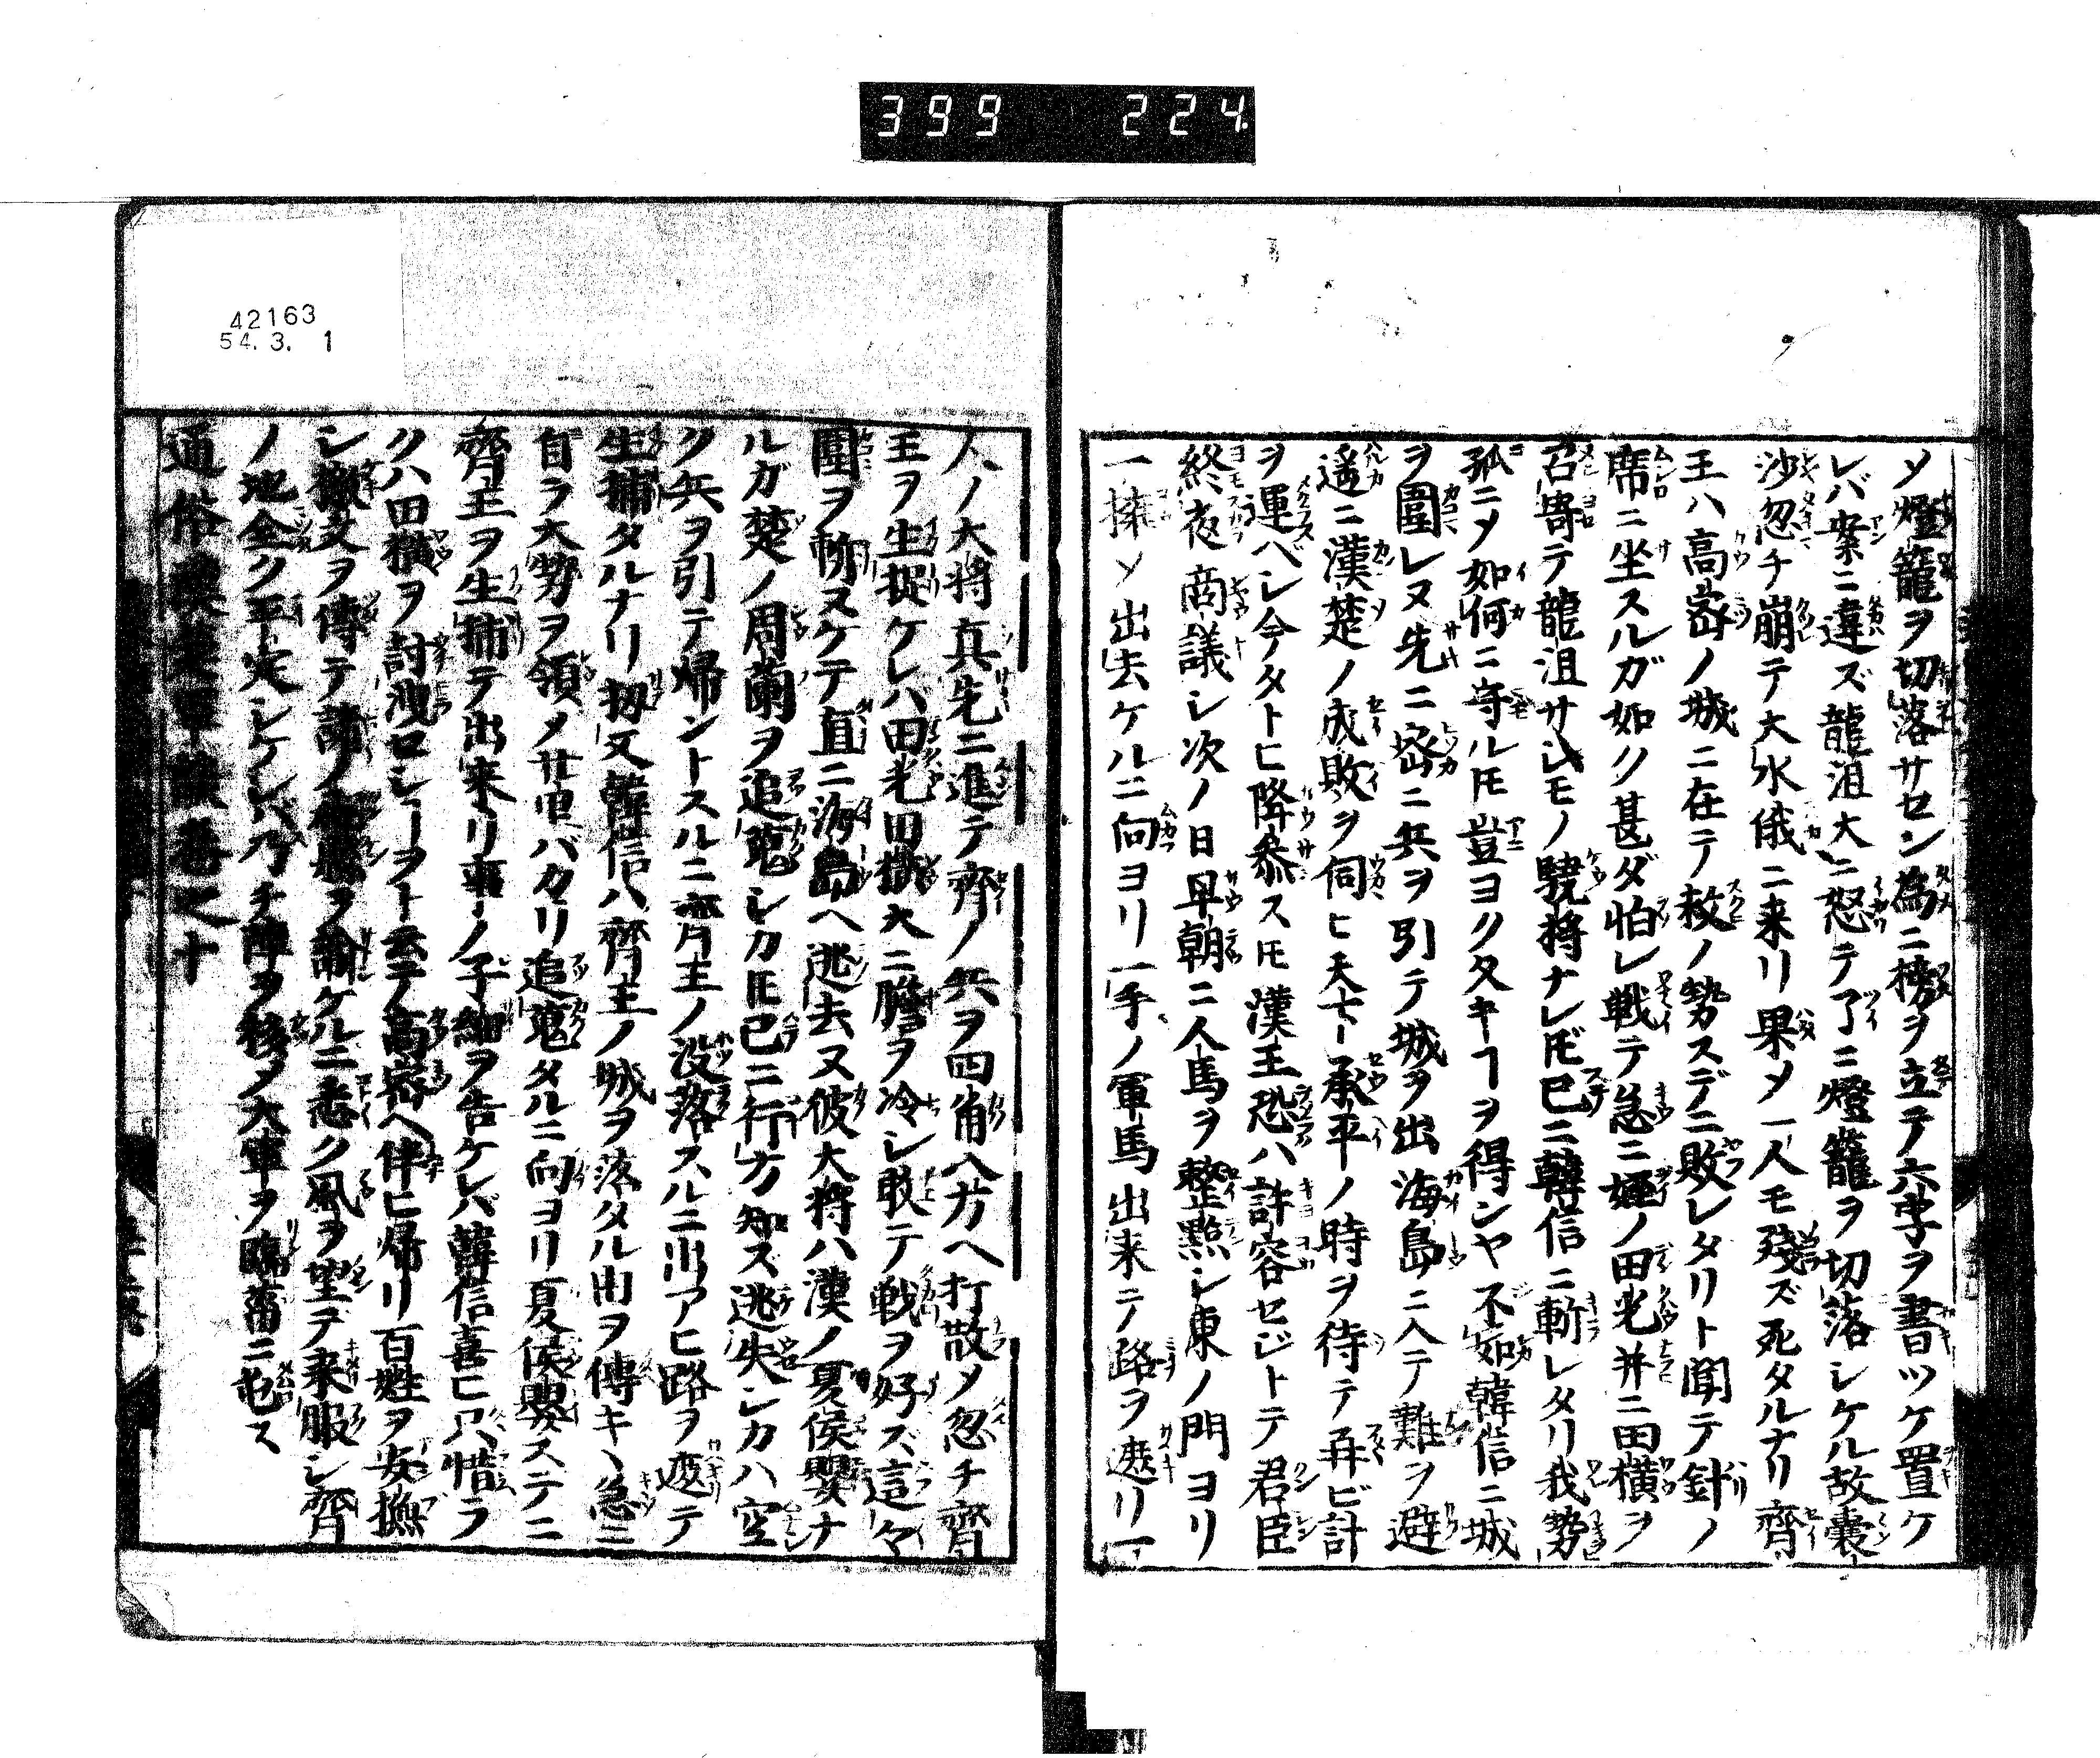 399 224.
ソ燈籠ヲ切落サセン為ニ榜ヲ立テ六字ヲ書ツケ置ケ
レバ案ニ違ズ龍沮大ニ怒テ了ニ燈籠ヲ切落シケル故囊
沙忽チ崩テ大水俄ニ来リ果〆一人モ殘ズ死タルナリ齊
王ハ高密ノ城ニ在テ救ノ勢スデニ敗レタリト聞テ針ノ
席ニ坐スルガ如ク甚ダ怕レ戦テ急ニ姪ノ田光并ニ田横ヲ
召寄テ龍沮サシモノ驍将ナレ𪜈已ニ韓信ニ斬レタリ我勢
孤ニ〆如何ニ守ル𪜈豈ヨクタモツヿヲ得ンヤ不如韓信ニ城
ヲ圍レヌ先ニ密ニ兵ヲ引テ城ヲ出海島ニ入テ難ヲ避
遙ニ漢楚ノ成敗ヲ伺ヒ天下承平ノ時ヲ待テ再ビ計
ヲ運ベシ今タトヒ降参ス𪜈漢王恐ハ許容セジトテ君臣
終夜商議シ次ノ日早朝ニ人馬ヲ整點シ東ノ門ヨリ
一擁〆出去ケルニ向ヨリ一手ノ軍馬出来テ路ヲ遮リ一
人ノ大将真先ニ進テ齊ノ兵ヲ四角八方ヘ打散〆忽チ齊
王ヲ生捉ケレハ田光田横大ニ膽ヲ冷シ敢テ戦ヲ好ズ這々
圍ヲ斬ヌケテ直ニ海島ヘ逃去ヌ彼大将ハ漢ノ夏侯嬰ナ
ルガ楚ノ周蘭ヲ追駈シカ𪜈已ニ行方知ズ逃失シカハ空
ク兵ヲ引テ帰ントスルニ齊王ノ没落スルニ出アヒ路ヲ遮テ
生捕タルナリ扨又韓信ハ齊王ノ城ヲ落タル由ヲ傳キヽ急ニ
自ラ大勢ヲ領〆廿里バカリ追駈タルニ向ヨリ夏侯嬰ステニ
齊王ヲ生捕テ出来リ事ノ子細ヲ告ケレバ韓信喜ヒ只惜ラ
クハ田横ヲ討洩ロシヿヲト云テ高密ヘ伴ヒ帰リ百姓ヲ安撫
シ檄文ヲ傳テ諸ノ郡縣ヲ諭ケルニ悉ク風ヲ望テ来服シ齊
ノ地全ク平定シケレバ乃チ陣ヲ移〆大軍ヲ臨菑ニ屯ス
通俗漢楚軍談巻之十
42163
54.3. 1